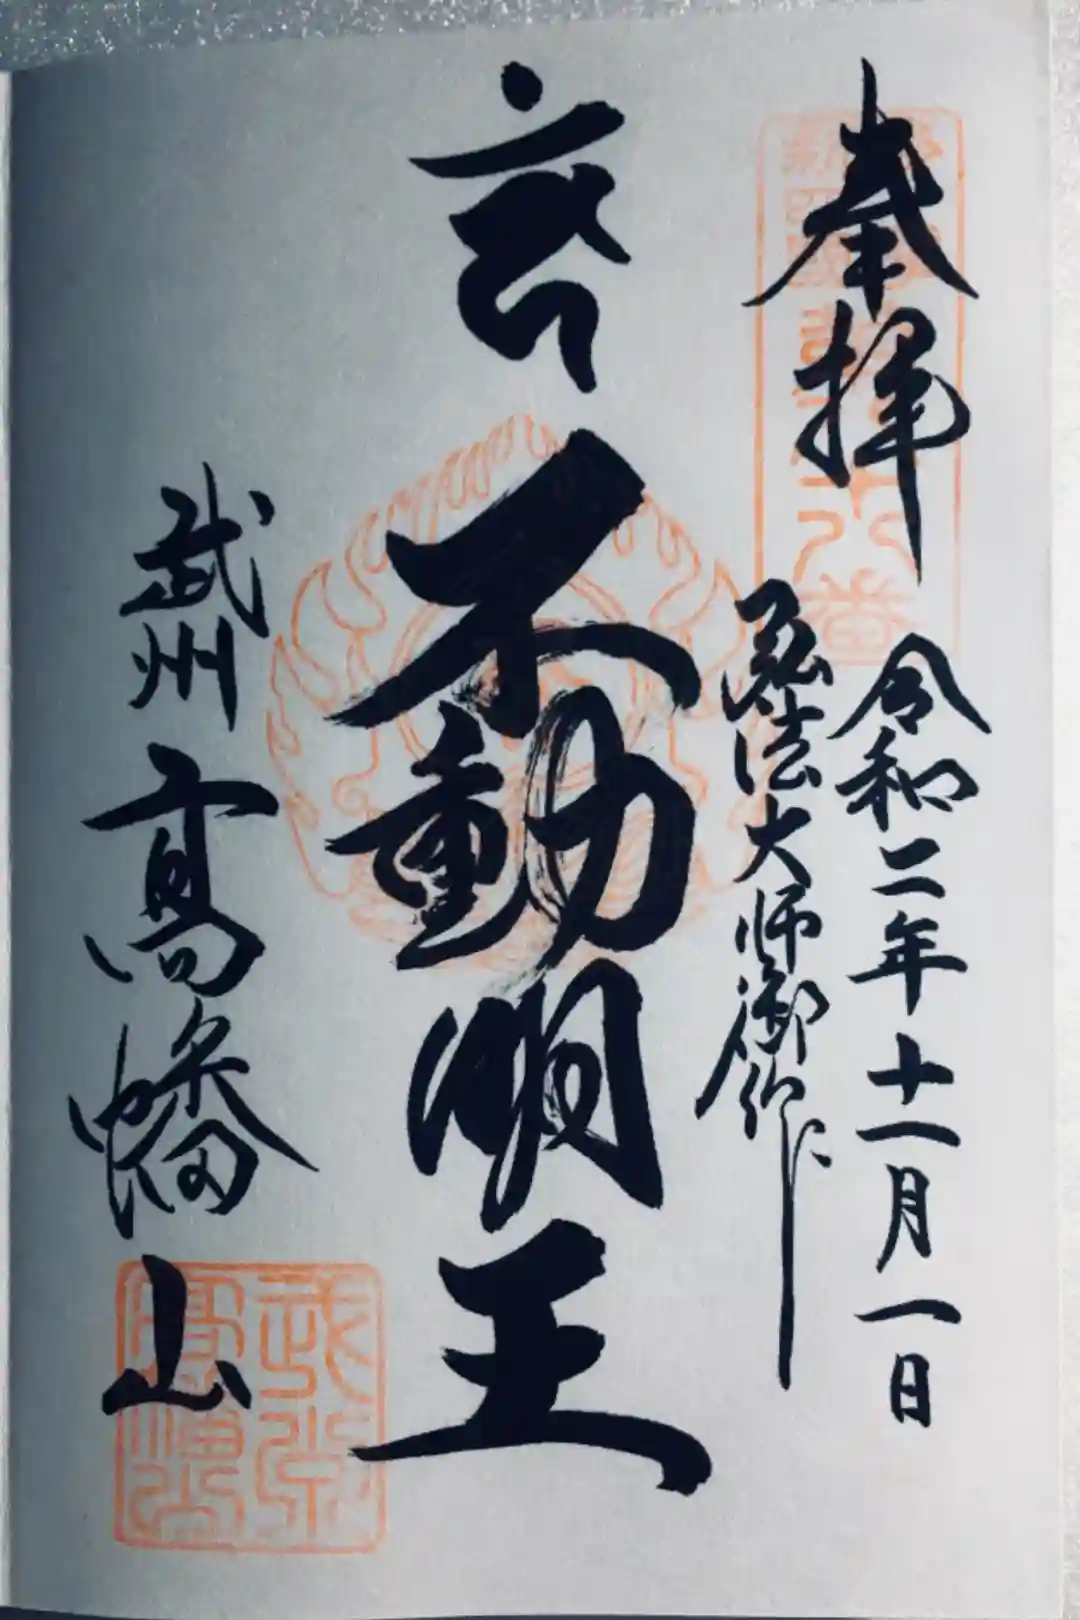 奉拝
令和二年十一月一日
弘法大師御作
不動明王
武州高幡山